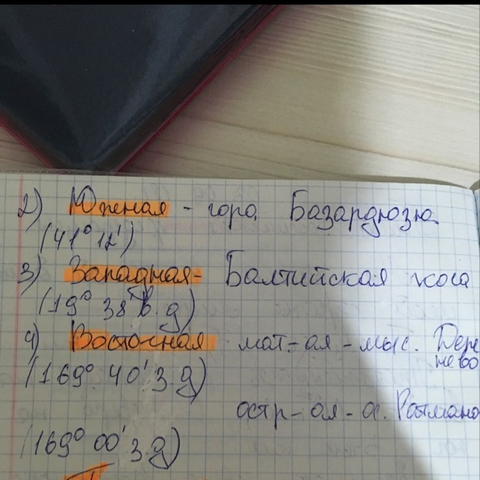 2) Южная - гора Базардюзю
(41° 12')
3) Западная - Балтийская коса
(19° 38' в.д)
4) Восточная мат-ая - мыс. Деж
нево
(169° 40' з.д)
остр-ая - о. Ратмано
(169° 00' з.д)